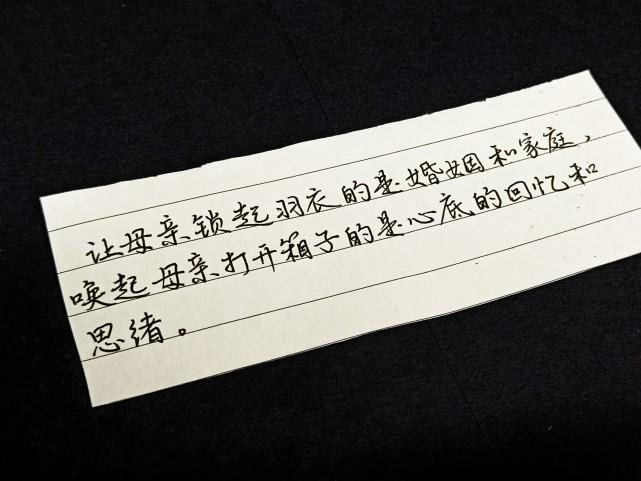 让母亲锁起羽衣的是婚姻和家庭，
唤起母亲打开箱子的是心底的回忆和
思绪。